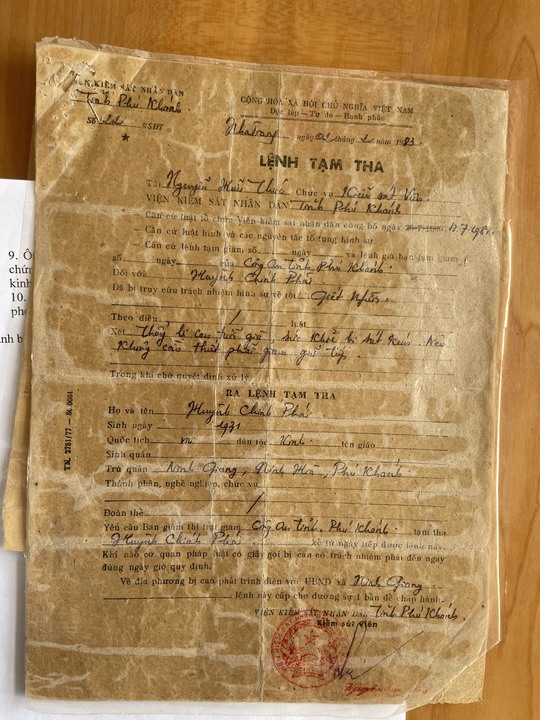 V.K.KIỂM SÁT NHÂN DÂN
Tỉnh Phú Khánh
Số KSĐT
CỘNG HÒA XÃ HỘI CHỦ NGHĨA VIỆT NAM
Độc lập - Tự do - Hạnh phúc
Nha Trang ngày 02 tháng 2 năm 1983
LỆNH TẠM THA
Tôi Nguyễn Hữu Chức vụ Kiểm sát Viên
VIỆN KIỂM SÁT NHÂN DÂN Tỉnh Phú Khánh
Căn cứ luật tổ chức Viện kiểm sát nhân dân công bố ngày 7.1981
Căn cứ luật hình và các nguyên tắc tố tụng hình sự
- Căn cứ lệnh tạm giam số ngày và lệnh gia hạn tạm giam
số ngày của Công An tỉnh Phú Khánh
Đối với Huỳnh Chính Phái
Đã bị truy cứu trách nhiệm hình sự về tội Giết Người
Theo điều / luật
Xét Thấy bị can tuổi già, sức khỏe bị sút kém. Nên
Không cần thiết phải giam giữ tiếp.
Trong khi chờ quyết định xử lý
RA LỆNH TẠM THA
Họ và tên Huỳnh Chính Phái
Sinh ngày 1931
Quốc tịch VN dân tộc Kinh tôn giáo
Sinh quán
Trú quán Ninh Giang, Ninh Hòa, Phú Khánh
Thành phần, nghề nghiệp, chức vụ
Đoàn thể /
Yêu cầu Ban giám thị trại giam Công An tỉnh Phú Khánh tạm tha
Huỳnh Chính Phái kể từ ngày tiếp được lệnh này.
Khi nào cơ quan pháp luật có giấy gọi bị can có trách nhiệm phải đến ngay
đúng ngày giờ quy định.
Về địa phương bị can phải trình diện với UBND xã Ninh Giang
lệnh này cấp cho đương sự 1 bản để chấp hành.
VIỆN KIỂM SÁT NHÂN DÂN Tỉnh Phú Khánh
Kiểm sát viên
TN. 2781/77 - 5t. 0001
9. Ô
chứn
kinh
10.
ph
nh b